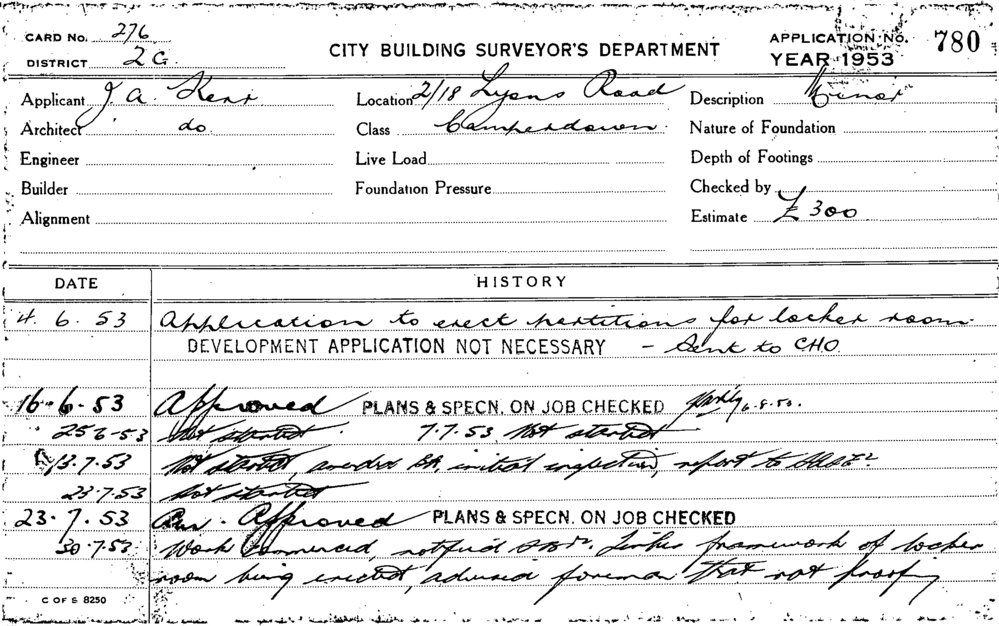 CARD No. 276
DISTRICT 2G.
CITY BUILDING SURVEYOR'S DEPARTMENT
APPLICATION No. 780
YEAR 1953
Applicant J. A. Kerr
Location 2/18 Lyons Road
Description Minor
Architect do.
Class Camperdown.
Nature of Foundation
Engineer
Live Load
Depth of Footings
Builder
Foundation Pressure
Checked by
Alignment
Estimate £300
DATE HISTORY
4. 6. 53 Application to erect partitions for locker room.
DEVELOPMENT APPLICATION NOT NECESSARY - Sent to CHO.
16-6-53 Approved PLANS & SPECN. ON JOB CHECKED 6.8.53.
25 6-53 Not started. 7.7.53. Not started
13.7.53 Not started, initial inspection, report to
23.7.53 Not started
23.7.53 Approved PLANS & SPECN. ON JOB CHECKED
30.7.53 Work commenced, framework of locker
room being erected, advised foreman that not proofing
C OF S 8250